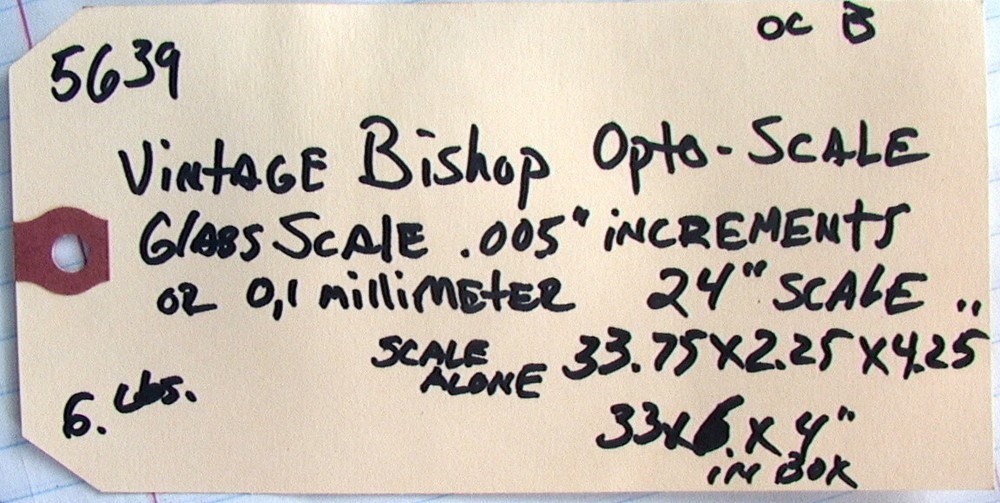 OC B
5639
VINTAGE Bishop Opto-SCALE
Glass SCAlE .005" iNCREMENTS
OR 0,1 millIMETER 24" SCALE "
SCALE ALONE 33.75X2.25X4.25
6. Lbs.
33X6 X 4"
IN BOX